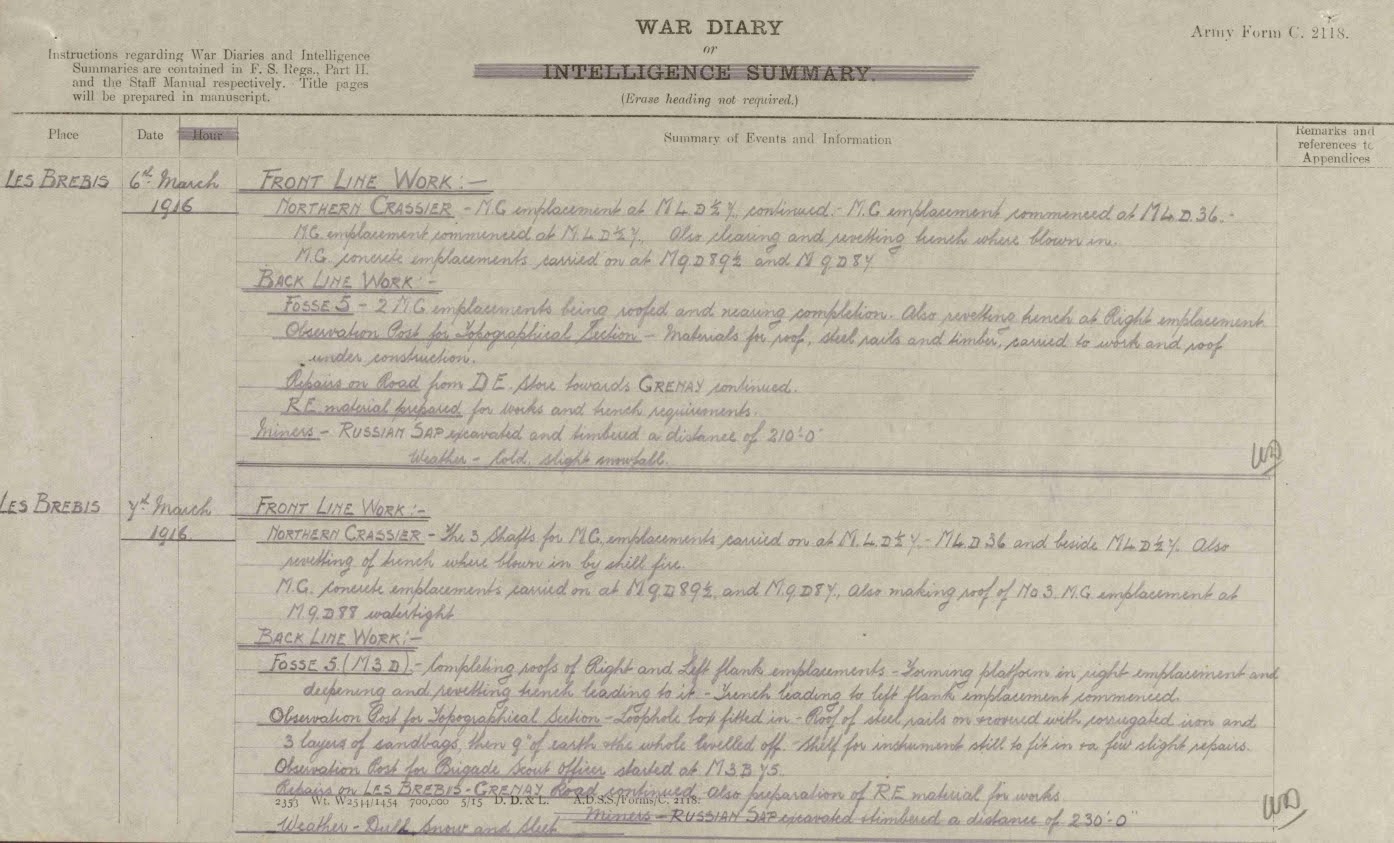 WAR DIARY
or
INTELLIGENCE SUMMARY.
(Erase heading not required.)
Army Form C. 2118.
Instructions regarding War Diaries and Intelligence
Summaries are contained in F. S. Regs., Part II.
and the Staff Manual respectively. Title pages
will be prepared in manuscript.
Place Date Hour Summary of Events and Information Remarks and references to Appendices
LES BREBIS 6th March FRONT LINE WORK:-
1916 NORTHERN CRASSIER - M.G emplacement at M4D½7. continued. - M.G emplacement commenced at M4.D.36. -
M.G. emplacement commenced at M.4.D½7. Also clearing and revetting trench where blown in.
M.G. concrete emplacements carried on at M9D89½ and M9D87
BACK LINE WORK:-
FOSSE 5 - 2 M.G emplacements being roofed and nearing completion. Also revetting trench at Right emplacement
Observation Post for Topographical Section - Materials for roof, steel rails and timber, carried to work and roof
under construction.
Repairs on Road from D.E. Store towards GRENAY continued.
R.E material prepared for works and trench requirements.
Miners - RUSSIAN SAP excavated and timbered a distance of 210'-0"
Weather - Cold, slight snowfall.
LES BREBIS 7th March FRONT LINE WORK:-
1916 NORTHERN CRASSIER - The 3 shafts for M.G. emplacements carried on at M.4.D½7. - M4D36 and beside M4D½7. Also
revetting of trench where blown in by shell fire.
M.G. concrete emplacements carried on at M9D89½ and M.9.D87. Also making roof of No 3. M.G emplacement at
M.9.D88 watertight
BACK LINE WORK:-
FOSSE 5. (M3D) - Completing roofs of Right and Left flank emplacements - Forming platform in right emplacement and
deepening and revetting trench leading to it - Trench leading to left flank emplacement commenced.
Observation Post for Topographical Section - Loophole box fitted in - Roof of steel rails on & covered with corrugated iron and
3 layers of sandbags, then 9" of earth & the whole levelled off. - Shelf for instrument still to fit in & a few slight repairs.
Observation Post for Brigade Scout Officer started at M3B75.
Repairs on LES BREBIS - GRENAY Road continued, also preparation of R.E material for works.
2353 Wt. W2544/1454 700,000 5/15 D. D. & L. A.D.S.S./Forms/C. 2118.
Miners - RUSSIAN SAP excavated & timbered a distance of 230'-0"
Weather - Dull, Snow and Sleet